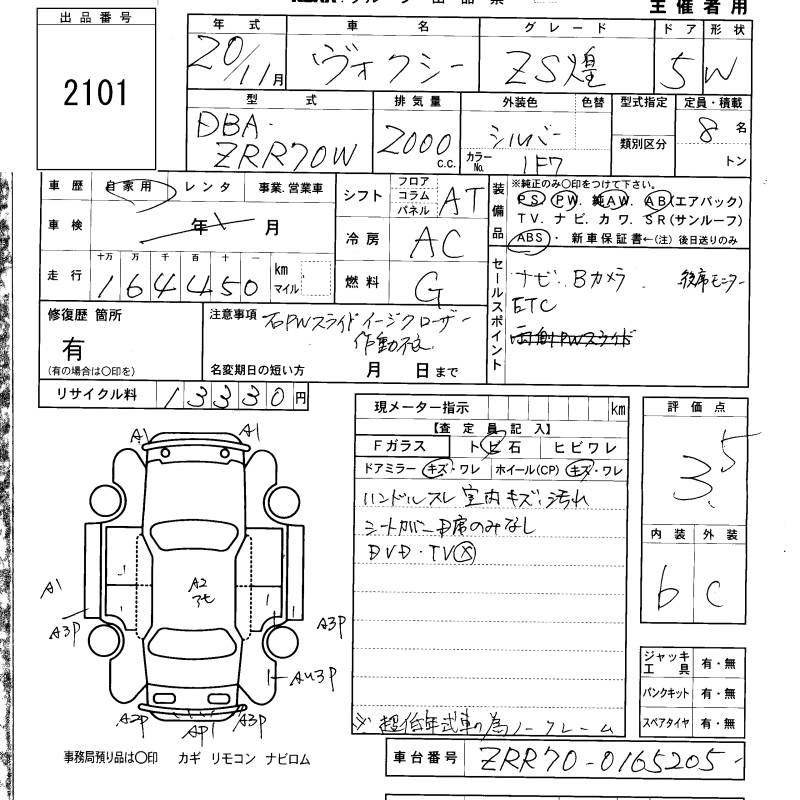 主催者用
出品番号
2101
年式 車名 グレード ドア 形状
20/11月 ヴォクシー ZS煌 5 W
型式 排気量 外装色 色替 型式指定 定員・積載
DBA- ZRR70W 2000 c.c. シルバー 類別区分 8名
カラーNo. 1F7 トン
車歴 自家用 レンタ 事業.営業車
車検 年 月
走行 十万 万 千 百 十 一
164450 km マイル
シフト フロア コラム パネル AT
冷房 AC
燃料 G
装備品 ※純正のみ〇印をつけて下さい。
PS PW 純AW AB(エアバック)
TV ナビ カワ SR(サンルーフ)
ABS ・ 新車保証書←(注)後日送りのみ
セールスポイント
ナビ. Bカメラ. 後席モニター
ETC
両側PWスライド
修復歴 箇所
有
(有の場合は〇印を)
注意事項 右PWスライドイージークローザー
作動不良
名変期日の短い方 月 日まで
リサイクル料 13330円
現メーター指示 km
【査定員記入】
Fガラス トビ石 ヒビワレ
ドアミラー キズ・ワレ ホイール(CP) キズ・ワレ
ハンドルスレ 室内キズ・汚れ
シートカバー 中席のみなし
DVD・TV×
※超低年式車の為ノークレーム
評価点
3.5
内装 外装
b C
ジャッキ工具 有・無
パンクキット 有・無
スペアタイヤ 有・無
A1 A1
A2
アモ
A1
A3P A3P
AU3P
A2P AP1 A3P
事務局預り品は〇印 カギ リモコン ナビロム
車台番号 ZRR70-0165205